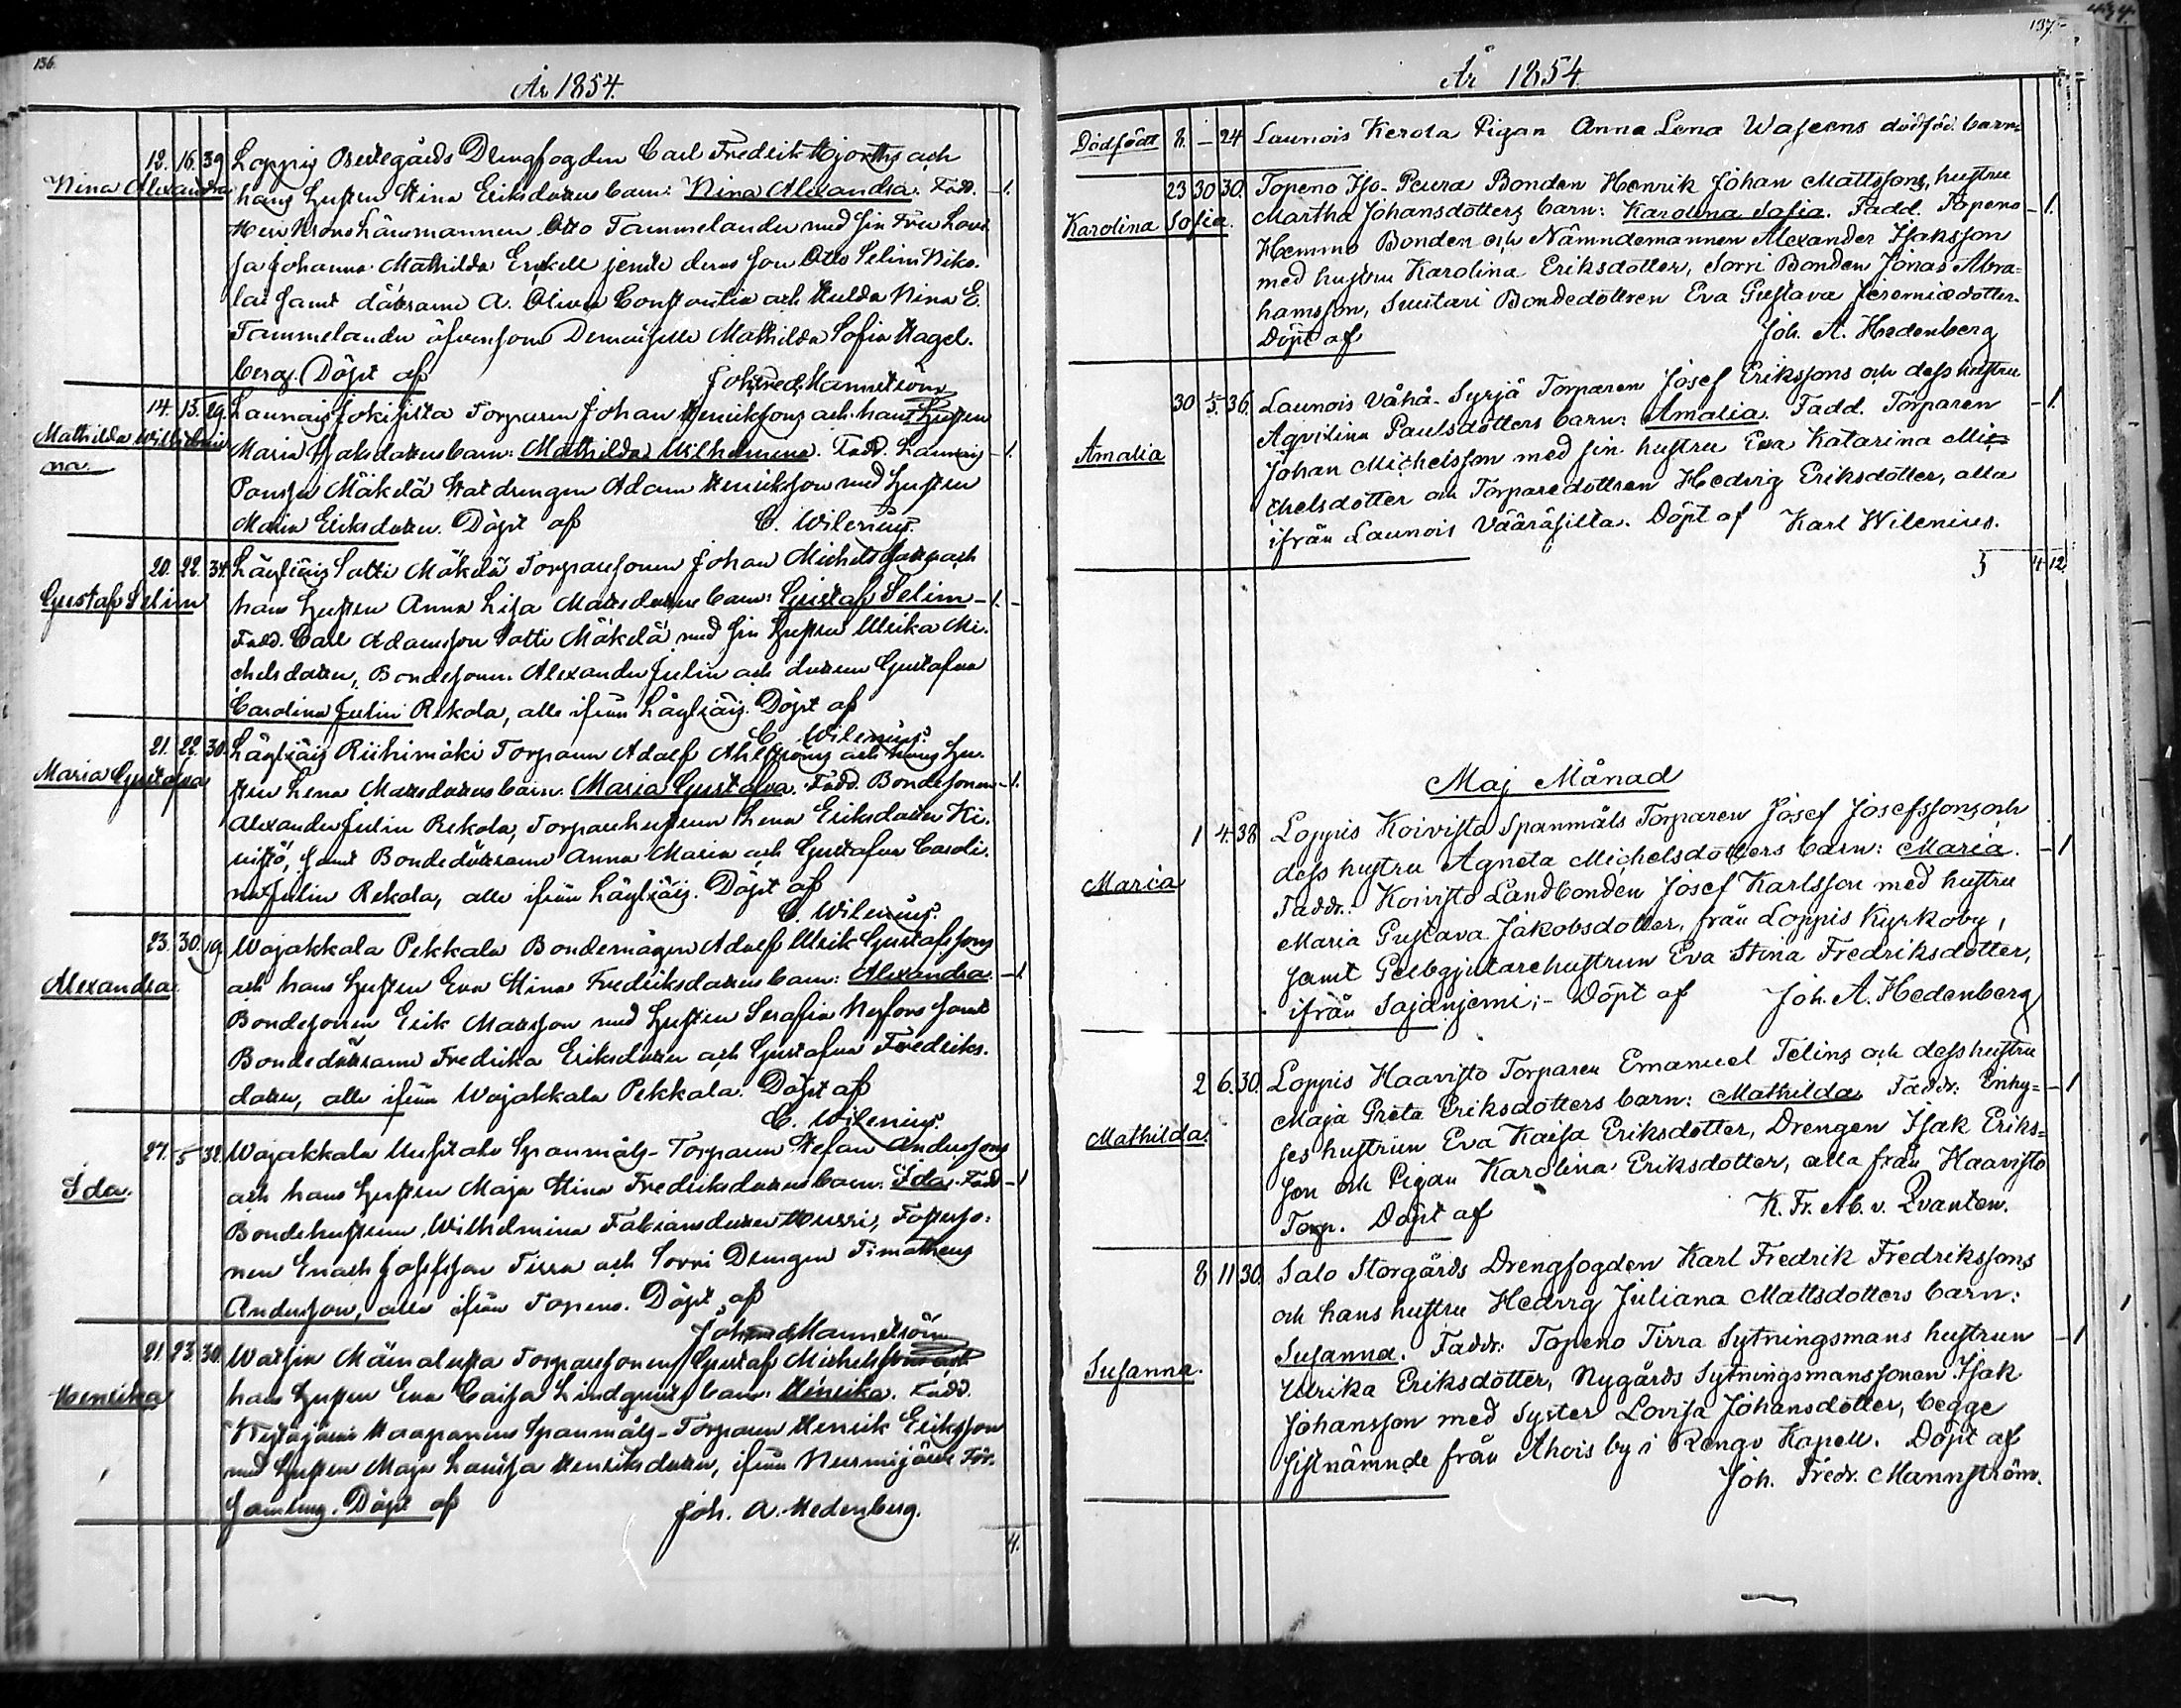 136.
År 1854.
12. 16. 39.
Nina Alexandra
Loppis Prestegårds Drengfogden Carl Fredrik Hjorths och
hans hustru Stina Eriksdotters barn: Nina Alexandra. Fadd. - 1.
Herr Kronolänsmannen Otto Tammelander med sin Fru Lovi
sa Johanna Mathilda jemte deras son Otto Selim Niko-
lai samt döttrarne A. Olivia Constantia och Hulda Nina E.
Tammelander äfvensom Demoiselle Mathilda Sofia Hagel-
berg. Döpt af Joh. Fred. Mannström
14. 15. 29.
Mathilda Wilhelmi
na.
Launois Jokisista Torparen Johan Henriksons och hans hustru
Maria Isaksdotters barn: Mathilda Wilhelmina. Fadd. Launois - 1.
Mäkelä drengen Adam Henriksson med hustru
Maria Eriksdotter. Döpt af C. Wilenius.
20. 22. 34.
Gustaf Selim
Läyliäis Sotti Mäkelä Torparesonen Johan Michelssons och
hans hustru Anna Lisa Mattsdotters barn: Gustaf Selim - 1. -
Fadd. Carl Adamsson Sotti Mäkelä med sin hustru Ulrika Mi-
chelsdotter, Bondesonen Alexander Julin och dottren Gustafva
Carolina Julin Rekola, alla ifrån Läyliäis. Döpt af
C. Wilenius.
21. 22. 30.
Maria Gustafva
Läyliäis Riihimäki Torparen Adolf Ahlströms och hans hu-
stru Lena Mattsdotters barn: Maria Gustafva. Fadd. Bondesonen - 1.
Alexander Julin Rekola, Torparehustrun Lena Eriksdotter Ki-
nittö, samt Bondedöttrarne Anna Maria och Gustafva Caroli-
na Julin Rekola, alla ifrån Läyliäis. Döpt af
C. Wilenius.
23. 30. 19.
Alexandra.
Wojakkala Pekkala Bondemågen Adolf Ulrik Gustafssons
och hans hustru Eva Stina Fredriksdotters barn: Alexandra. - 1
Bondesonen Erik Mattsson med hustru Serafia Nyfors samt
Bondedöttrarne Fredrika Eriksdotter och Gustafva Fredriks-
dotter, alla ifrån Wojakkala Pekkala. Döpt af
C. Wilenius.
27. 5 32.
Ida.
Wojakkala Uusitalo Spanmåls-Torparen Stefan Anderssons
och hans hustru Maja Stina Fredriksdotters barn: Ida. Fadd - 1
Bondehustrun Wilhelmina Fabiansdotter Hurri, Fosterso-
nen Enoch Josefsson Tirra och Sorri Drengen Timotheus
Andersson, alla ifrån Topeno. Döpt af
Joh. Fred. Mannström
21. 23. 30.
Henrika
Watsia Mämalusta Torparesonens Gustaf Michelssons och
hans hustru Eva Caisa Lindqvists barn: Henrika. Fadd.
Haapaniemi Spanmåls-Torparen Henrik Eriksson
med hustru Maja Lovisa Henriksdotter, ifrån Nurmijärvi För-
samling. Döpt af Joh. A. Hedenberg.
4.
137.
434.
År 1854.
Dödfödt 8. - 24
Launois Kerola Pigan Anna Lena Wasens dödföd. barn.
23 30 30.
Karolina Sofia.
Topeno Iso-Peura Bonden Henrik Johan Mattssons, hustru
Martha Johansdotters barn: Karolina Sofia. Fadd. Topeno - 1.
Hemmo Bonden och Nämndemannen Alexander Isaksson
med hustru Karolina Eriksdotter, Sorri Bonden Jonas Abra-
hamsson, Suutari Bondedottren Eva Gustava Jeremiædotter.
Döpt af Joh. A. Hedenberg
30 5/5. 36.
Amalia
Launois Vähä-Syrjä Torparen Josef Erikssons och dess hustru
Agvilina Paulsdotters barn: Amalia. Fadd. Torparen - 1.
Johan Michelsson med sin hustru Eva Katarina Mi-
chelsdotter och Torparedottren Hedvig Eriksdotter, alla
ifrån Launois Vääräsilta. Döpt af Karl Wilenius.
3 4 12.
Maj Månad
1 4. 38
Maria
Loppis Koivisto Spanmåls Torparen Josef Josefssons och
dess hustru Agneta Michelsdotters barn: Maria. - 1
Faddr.: Koivisto Landbonden Josef Karlsson med hustru
Maria Gustava Jakobsdotter, från Loppis Kyrkoby,
samt Gelbgjutarehustrun Eva Stina Fredriksdotter,
ifrån Sajaniemi; - Döpt af Joh. A. Hedenberg
2 6. 30.
Mathilda.
Loppis Haavisto Torparen Emanuel Telins och dess hustru
Maja Greta Eriksdotters barn: Mathilda. Faddr. Enhy= - 1
seshustrun Eva Kaisa Eriksdotter, Drengen Isak Eriks=
son och Pigan Karolina Eriksdotter, alla från Haavisto
Torp. Döpt af K. Fr. Ab. v. Qvanten.
8 11 30.
Susanna.
Salo Storgårds Drengfogden Karl Fredrik Fredrikssons
och hans hustru Hedvig Juliana Mattsdotters barn:
Susanna. Faddr. Topeno Tirra Sytningsmans hustrun - 1
Ulrika Eriksdotter, Nygårds Sytningsmanssonen Isak
Johansson med Syster Lovisa Johansdotter, begge
sistnämnde från Ahois by i Rengo Kapell. Döpt af
Joh. Fredr. Mannström.